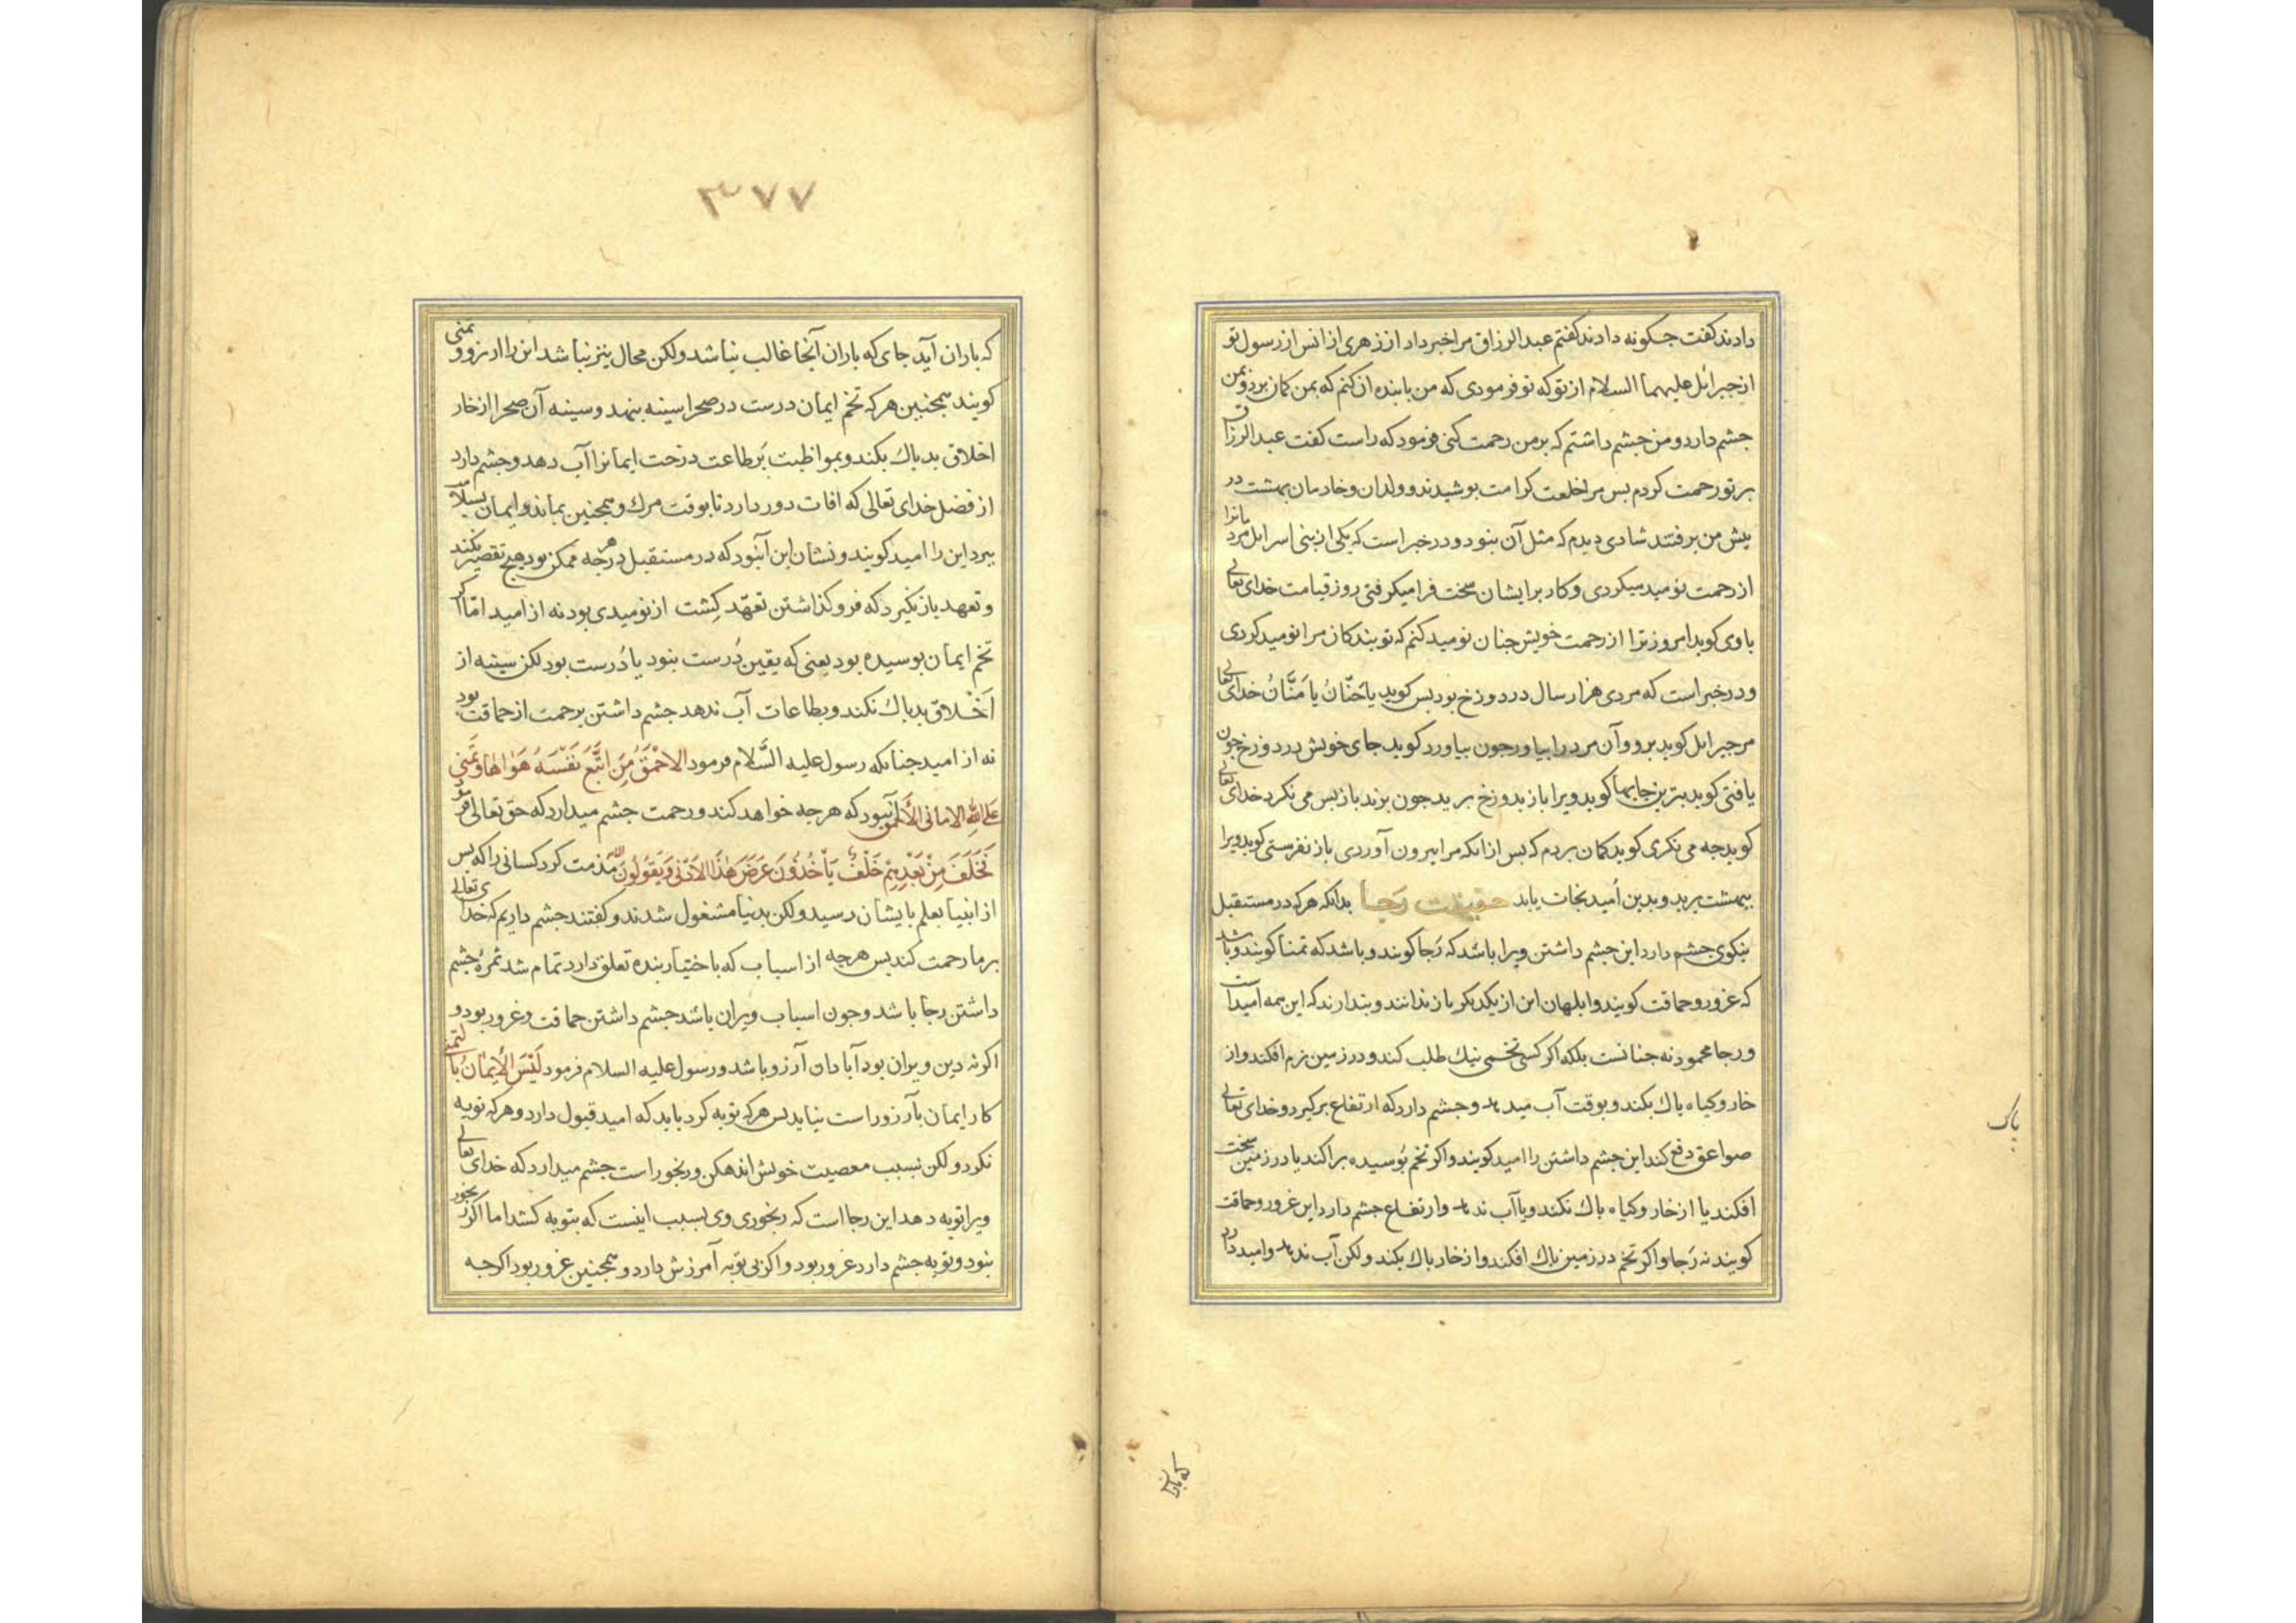 دادند کفت جکونه دادند کفتم عبد الرزاق مرا خبر داد از زهری از انس از رسول تو
از جبرائل علیهما السلام از تو که تو فرمودی که من با بنده آن کنم که بمن کمان برد و بمن
جشم دارد و من جشم داشتم که بر من رحمت کنی فرمود که راست کفت عبد الرزاق
بر تو رحمت کردم بس مرا خلعت کرامت بوشیدند و ولدان و خادمان بهشت در
بیش من برفتند شادی دیدم که مثل آن نبود و در خبر است که یکی از بنی اسرائل مردمانرا
از رحمت نومید میکردی و کار بر ایشان سخت فرا میکرفتی روز قیامت خدای تعالی
با وی کوید امروز ترا از رحمت خویش جنان نومید کنم که تو بندکان مرا نومید کردی
و در خبر است که مردی هزار سال در دوزخ بود بس کوید یا حَنّانُ یا مَنَّانُ خدای تعالی
مر جبرائل کوید برو و آن مرد را بیاور جون بیاورد کوید جای خویش در دوزخ جون
یافتی کوید بترین جایها کوید ویرا باز بدوزخ برید جون برند باز بس می نکرد خدای تعالی
کوید جه می نکری کوید کمان بردم که بس از انکه مرا بیرون آوردی باز نفرستی کوید ویرا
ببهشت برید و بدین اُمید نجات یابد حقیقت رَجا بدانکه هر که در مستقبل
نیکوی جشم دارد این جشم داشتن ویرا باشد که رَجا کویند و باشد که تمنا کویند و باشد
که غرور و حماقت کویند و ابلهان این از یکدیکر باز ندانند و بندارند که این همه امید است
و رجا محمود نه جنانست بلکه اکر کسی تخمی نیك طلب کند و در زمین نرم افکند و از
خار و کیاه باك بکند و بوقت آب میدهد و جشم دارد که ارتفاع برکیرد و خدای تعالی
صواعق دفع کند این جشم داشتن را امید کویند و اکر تخم بُوسیده براکند یا در زمین سخت
افکند یا از خار و کیاه باك نکند و یا آب ندهد و ارتفاع جشم دارد این غرور و حماقت
کویند نه رَجا و اکر تخم در زمین باك افکند و از خار باك بکند و لکن آب ندهد و امید دارد
باك
که باران
۳۷۷
که باران آید جای که باران آنجا غالب نباشد ولکن محال نیز نباشد این را ارزو و تمنی
کویند همجنین هر که تخم ایمان درست در صحرا سینه بنهد و سینه آن صحرا از خار
اخلاق بد باك بکند و بمواظبت بَر طاعت درخت ایمانرا آب دهد و جشم دارد
از فضل خدای تعالی که افات دور دارد تا بوقت مرك و همجنین بماند و ایمان بسلامت
ببرد این را امید کویند و نشان این آنبود که در مستقبل در هر جه ممکن بود هیج تقصیر نکند
و تعهد باز نکیرد که فرو کذاشتن تعهّد کِشت از نومیدی بود نه از امید امّا اکر
تخم ایمان بوسیده بود یعنی که یقین دُرست نبود یا دُرست بود لکن سینه از
اَخْلاق بد باك نکند و بطاعات آب ندهد جشم داشتن بر رحمت از حماقت بود
نه از امید جنانکه رسول علیه السَّلام فرمود الاَحْمَقُ مَنِ اتَّبَعَ نَفْسَهُ هَوٰاهٰا وَتَمَنی
عَلَی اللهِ الامانی الاَحمق آنبود که هر جه خواهد کند و رحمت جشم میدارد که حق تعالی فرمود
فَخَلَفَ مِنْ بَعْدِهِمْ خَلْفٌ یَأْخُذُونَ عَرَضَ هٰذَا الاَدْنٰی وَیَقُولُونَ مذمت کرد کسانی را که بس
از انبیا بعلم بایشان رسید ولکن بدنیا مشغول شدند و کفتند جشم داریم که خدای تعالی
بر ما رحمت کند بس هر جه از اسباب که باختیار بنده تعلق دارد تمام شد ثمرهٔ جشم
داشتن رجا باشد و جون اسباب ویران باشد جشم داشتن حماقت و غرور بود و
اکر نه دین ویران بود آبادان آرزو باشد و رسول علیه السلام فرمود لَیْسَ الاِیْمٰانُ بِالتّمنی
کار ایمان بآرزو راست نیاید بس هر که توبه کرد باید که امید قبول دارد و هر که توبه
نکرد ولکن بسبب معصیت خویش اندهکن و رنجور است جشم میدارد که خدای تعالی
ویرا توبه دهد این رجا است که رنجوری وی بسبب اینست که بتوبه کشد اما اکر رنجور
نبود و توبه جشم دارد غرور بود و اکر بی توبه آمرزش دارد و همجنین غرور بود اکر جه